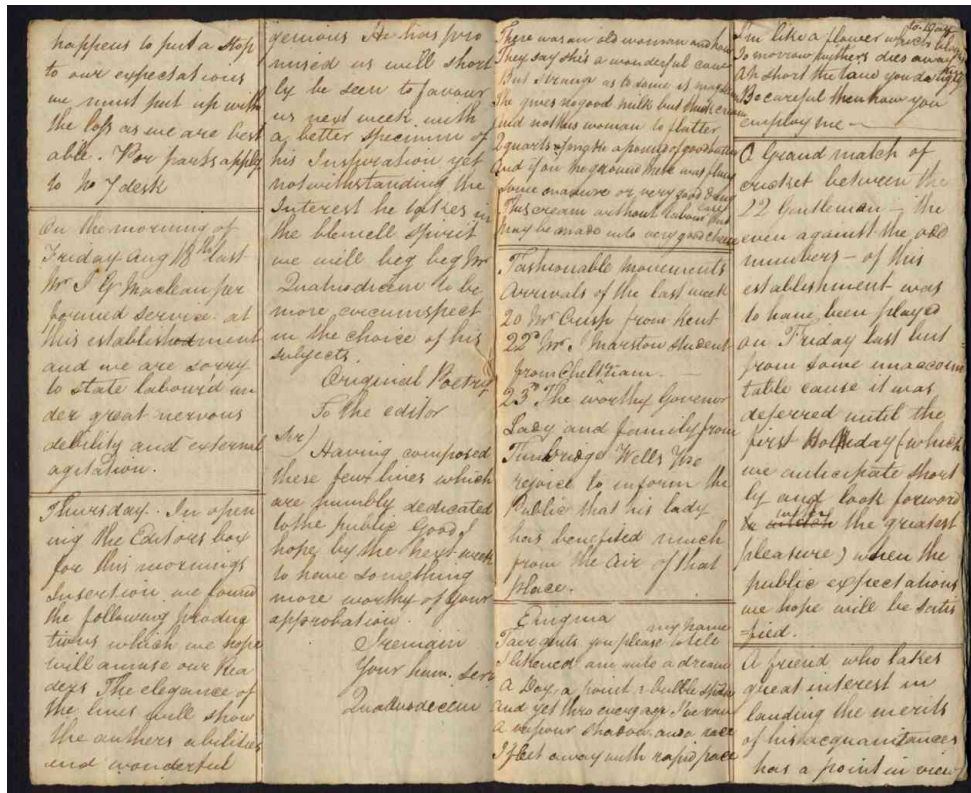 happens to put a stop
to our expectations
we must put up with
the loss as we are best
able. For parts apply
to No 7 desk
On the morning of
Friday Aug 18th last
Mr J G Maclean per
formed service at
this establishment
and we are sorry
to state labourd un
der great nervous
debility and external
agitation.
Thursday. In open
ing the Editors box
for this mornings
Insertion we found
the following produc
tions which we hope
will amuse our Rea
ders The elegance of
the lines will show
the authors abilities
and wonderful
genious He has pro
mised us will short
ly be seen to favour
us next week with
a better specimen of
his Inspiration yet
notwithstanding the
Interest he takes in
the spirit
we will beg beg Mr
Quatuodecem to be
more circumspect
in the choice of his
subjects.
Original Poetry
To the editor
Sir)
Having composed
these few lines which
are humbly dedicated
to the public Good I
hope by the next week
to have something
more worthy of your
approbation.
I remain
Your hum. Serv
Quatuodecem
There was an old woman and how
They say she's a wonderful cow
But strange as to some it may
She gives no good milk but thick cream
and not this woman to flatter
2 quarts a pound of good butter
And if on the ground there was flung
Some manure or very good dung
This cream without labour or care
May be made into very good cheese
Fashionable Movements
Arrivals of the last week
20 Mr Crisp from Kent
22d Mr J Marston student
from Cheltnam.
23d The worthy Govenor
Lady and family from
Tunbridge Wells We
rejoice to inform the
Public that his lady
has benefited much
from the Air of that
place.
Enigma
my name
Fair gents you please to tele
I likened am unto a dream
A Day, a point, a bubble
And yet thro every age I've ran
A vapour shadow and a race
I fleet away with rapid pace
to-Day
I'm like a flower which
To morrow withers dies away
Ah short the time you
Be careful then how you
employ me
A Grand match of
cricket between the
22 Gentleman - the
even against the odd
numbers - of this
establishment was
to have been played
on Friday last but
from some unaccoun
table cause it was
deferred until the
first Holliday (which
we anticipate short
ly and look forword
with
to the greatest
pleasure) when the
public expectations
we hope will be satis
=fied.
A friend who takes
great interest in
lauding the merits
of his acquaintances
has a point in view